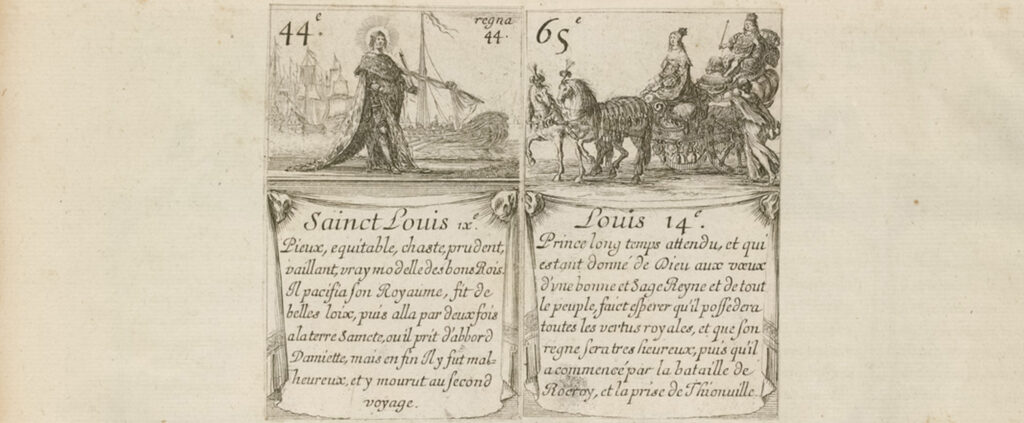 44.e
regna
44.
Sainct Louis ixe.
Pieux, equitable, chaste, prudent,
vaillant, vray modelle des bons Rois.
Il pacifia son Royaume, fit de
belles loix, puis alla par deux fois
a la terre Saincte, ou il prit d'abbord
Damiette, mais en fin Il y fut mal-
heureux, et y mourut au second
voyage.
65e
Louis 14e.
Prince long temps attendu, et qui
estant donné de Dieu aux vœux
d'vne bonne et Sage Reyne et de tout
le peuple, faict esperer qu'il possedera
toutes les vertus royales, et que son
regne sera tres heureux, puis qu'il
a commencé par la bataille de
Rocroy, et la prise de Thionville.